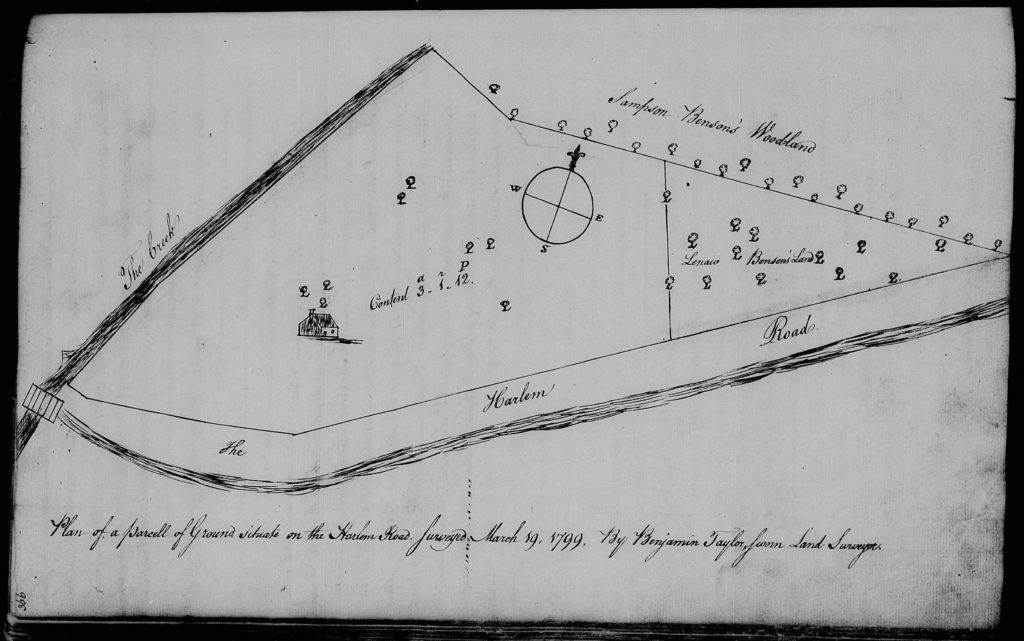 Sampson Benson's Woodland
The Creek
W
E
S
a r P
Content 3 - 1 - 12.
Lenaw Benson's Land
The Harlem Road.
Plan of a parcell of Ground situate on the Harlem Road. Surveyed March 19, 1799. By Benjamin Taylor, sworn Land Surveyr.
366